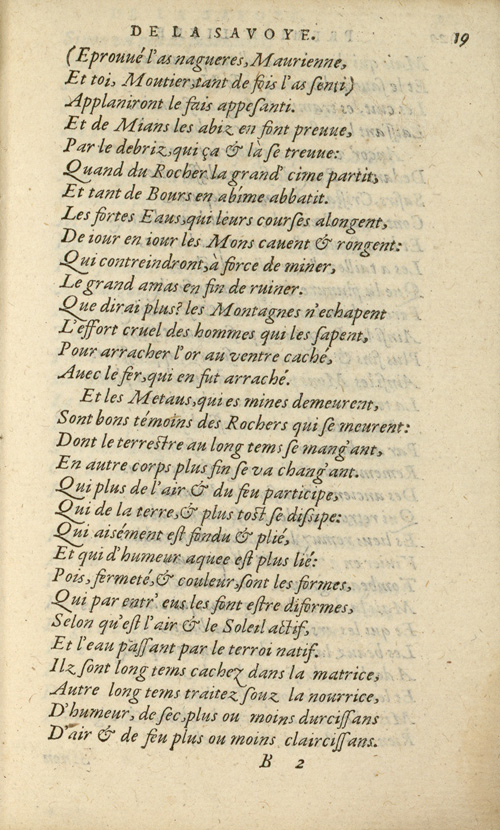 DE LA SAVOYE. 19
(Eprouué l'as nagueres, Maurienne,
Et toi, Moutier, tant de fois l'as ſenti)
Applaniront le fais appeſanti.
Et de Mians les abiz en font preuue,
Par le debriz, qui ça & là ſe treuue:
Quand du Rocher la grand' cime partit,
Et tant de Bours en abíme abbatit.
Les fortes Eaus, qui leurs courſes alongent,
De iour en iour les Mons cauent & rongent:
Qui contreindront, à force de miner,
Le grand amas en fin de ruiner.
Que dirai plus? les Montagnes n'echapent
L'effort cruel des hommes qui les ſapent,
Pour arracher l'or au ventre caché,
Auec le fer, qui en fut arraché.
Et les Metaus, qui es mines demeurent,
Sont bons témoins des Rochers qui ſe meurent:
Dont le terreſtre au long tems ſe mang'ant,
En autre corps plus fin ſe va chang'ant.
Qui plus de l'air & du feu participe,
Qui de la terre, & plus toſt ſe diſsipe:
Qui aisément eſt fondu & plié,
Et qui d'humeur aquee eſt plus lié:
Pois, fermeté, & couleur, ſont les formes,
Qui par entr' eus les font eſtre diformes,
Selon qu'eſt l'air & le Soleil actif,
Et l'eau paſſant par le terroi natif.
Ilz ſont long tems cachez dans la matrice,
Autre long tems traitez ſouz la nourrice,
D'humeur, de ſec, plus ou moins durciſſans
D'air & de feu plus ou moins clairciſſans.
B 2